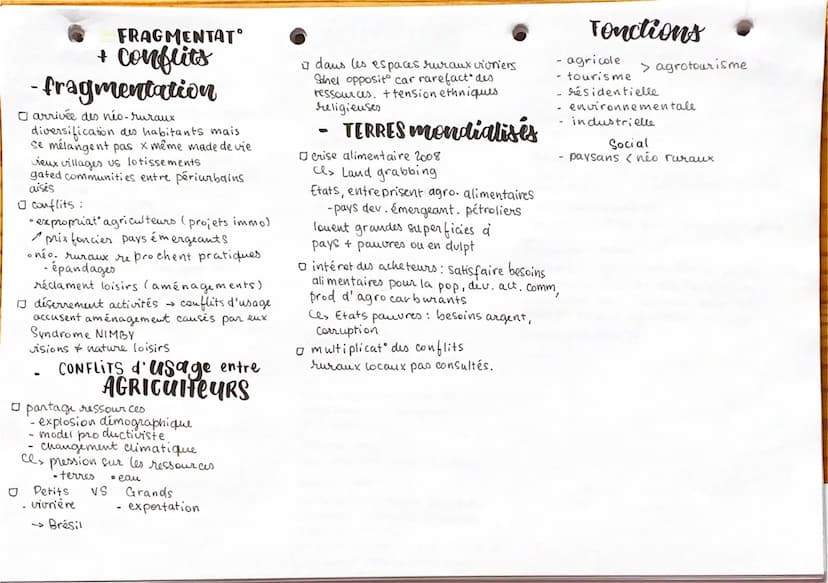 FRAGMENTAT°
+ Conflits
- fragmentation
□ arrivée des néo-ruraux
diversification des habitants mais
se mélangent pas × même mode de vie
vieux villages vs lotissements
gated communities entre périurbains
aisés
□ conflits :
• expropriat° agriculteurs (projets immo)
↗ prix foncier pays émergeants
• néo-ruraux reprochent pratiques
- épandages
réclament loisirs (aménagements)
□ désserrement activités → conflits d'usage
accusent aménagement causés par eux
Syndrome NIMBY
visions ≠ nature loisirs
- CONFLITS d'usage entre
AGRICULTEURS
□ partage ressources
- explosion démographique
- model productiviste
- changement climatique
↳ pression sur les ressources
• terres • eau
□ Petits VS Grands
- vivrière - exportation
→ Brésil
□ dans les espaces ruraux vivriers
Sahel opposit° car rarefact° des
ressources. + tension ethniques
religieuses
- TERRES mondialisés
□ crise alimentaire 2008
↳ Land grabbing
Etats, entreprisent agro-alimentaires
- pays dev. émergeant. pétroliers
louent grandes superficies à
pays + pauvres ou en dvlpt
□ intéret des acheteurs : satisfaire besoins
alimentaires pour la pop, dev. act. comm,
prod d'agrocarburants
↳ Etats pauvres : besoins argent,
corruption
□ multiplicat° des conflits
ruraux locaux pas consultés.
Fonctions
- agricole
> agrotourisme
- tourisme
- résidentielle
- environnementale
- industrielle
Social
- paysans < néo ruraux